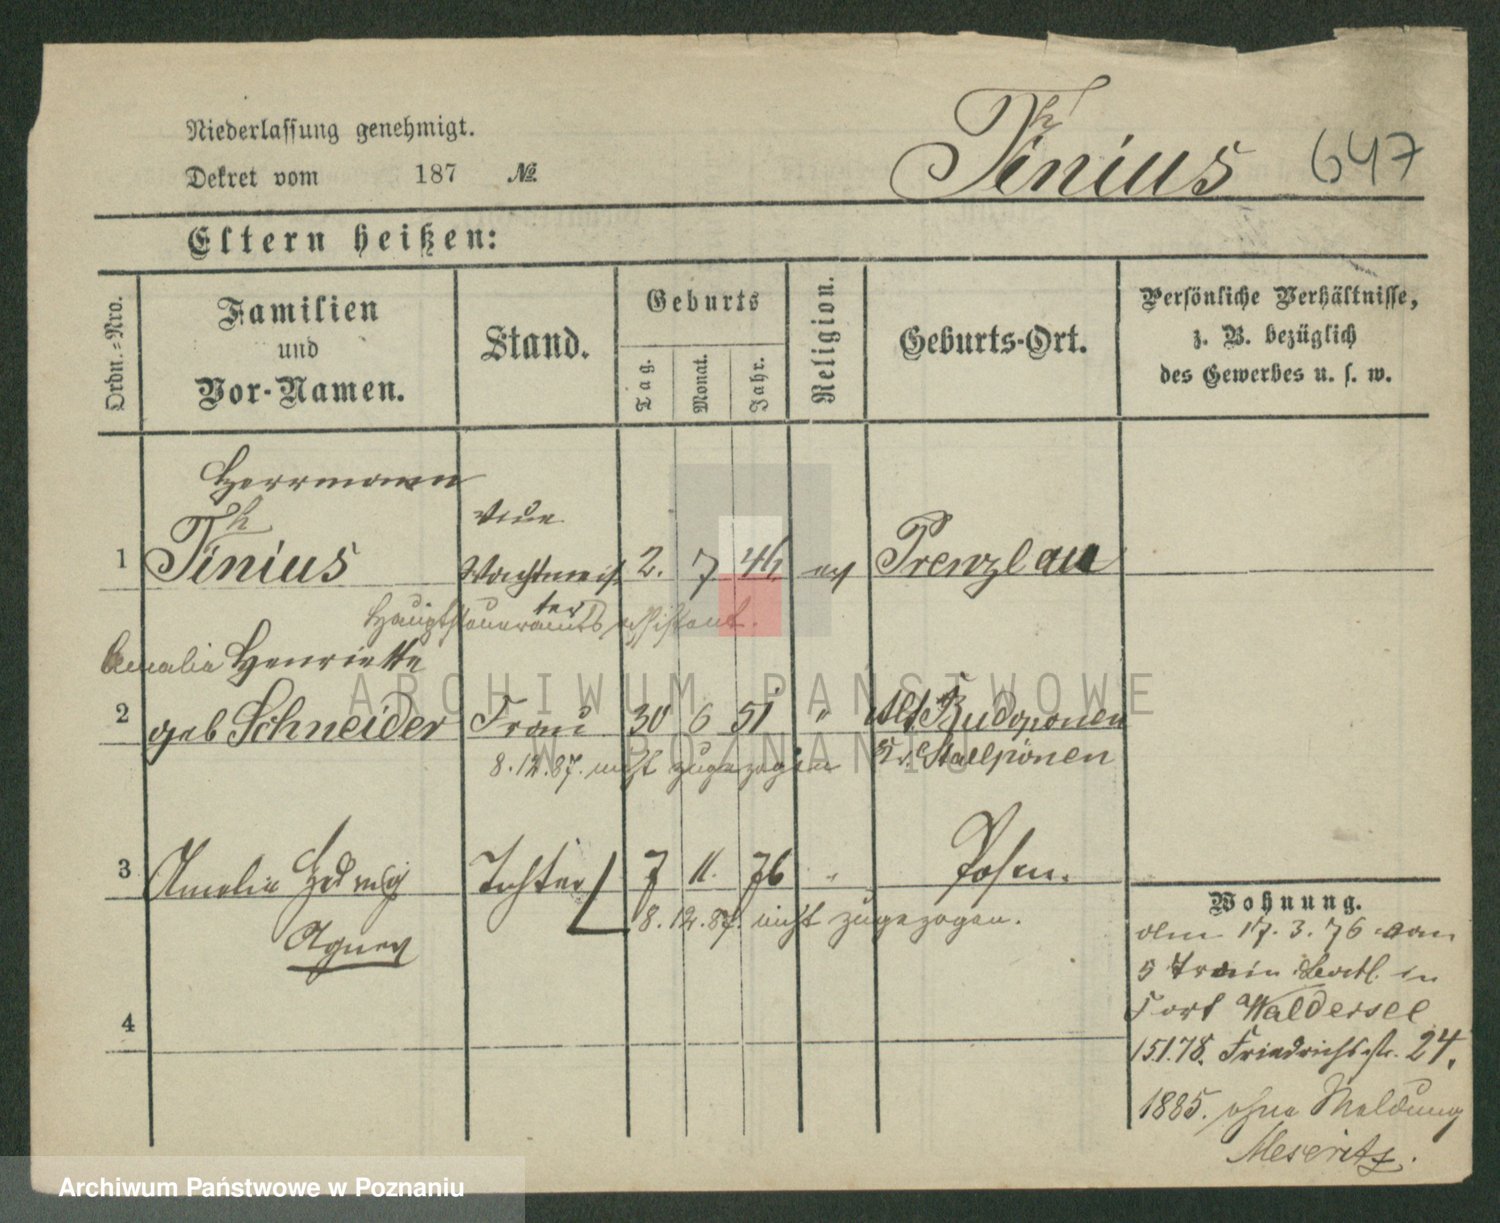 Niederlassung genehmigt.
Dekret vom 187 №
Thinius 647
Eltern heißen:
Ordn.-Nro.
Familien
und
Vor-Namen.
Stand.
Geburts
Tag.
Monat.
Jahr.
Religion.
Geburts-Ort.
Persönliche Verhältnisse,
z. B. bezüglich
des Gewerbes u. s. w.
Herrmann
1 Thinius Wachtmeister 2. 7 46 ev Prenzlau
Hauptsteueramts assistent.
Amalia Henriette
2 geb Schneider Frau 30 6 51 " Alt Budoponen
8.12.87. nicht zugezogen Kr. Stallpönen
3 Amalie Hedwig Tochter 7 11. 76 " Posen.
8.12.87. nicht zugezogen.
Agnes
4
Wohnung.
17. 3. 76 vom
5 Train Batl. in
Fort Waldersee
151.78. Friedrichstr. 24.
1885. ohne Meldung
Meseritz.
ARCHIWUM PAŃSTWOWE
W POZNANIU
Archiwum Państwowe w Poznaniu